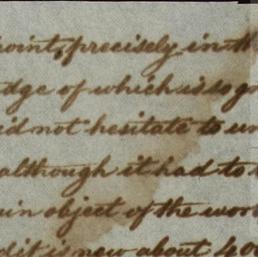 point, precisely in th
dge of which is so gr
id not hesitate to un
although it had to
in object of the wor
dit is now about 400